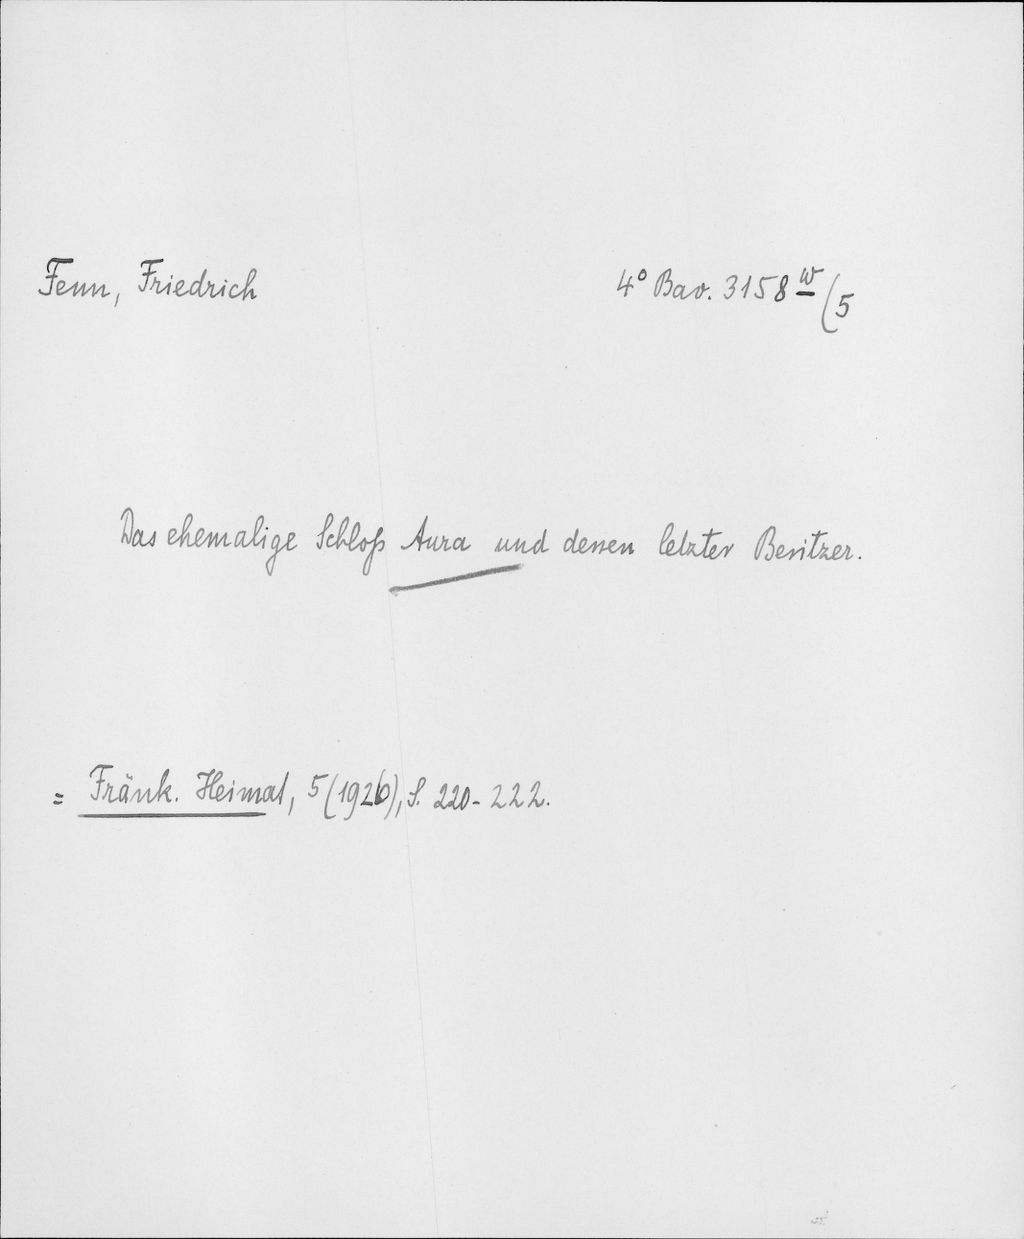 Fenn, Friedrich
4° Bav. 3158 w/5
Das ehemalige Schloß Aura und dessen letzter Besitzer.
= Fränk. Heimat, 5 (1926), S. 220-222.